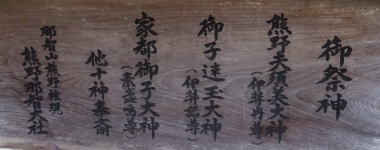 御祭神
熊野夫須美大神
(伊弉冉尊)
御子速玉大神
(伊弉諾尊)
家都御子大神
(素盞嗚尊)
他十神奉斎
那智山熊野権現
熊野那智大社